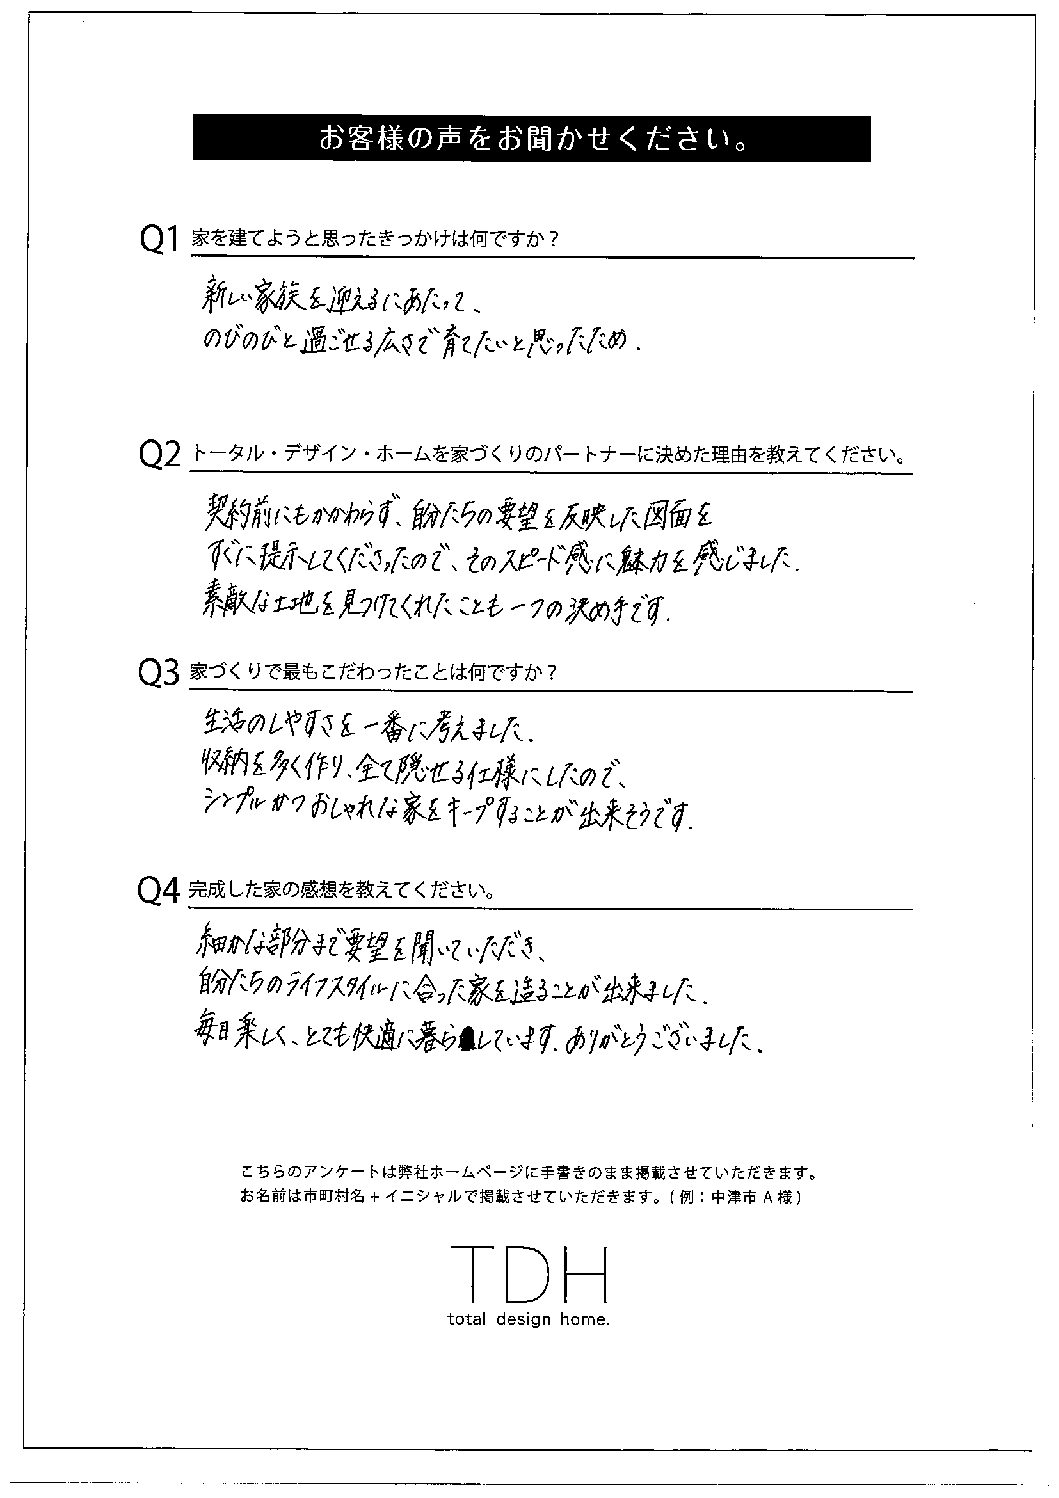 お客様の声をお聞かせください。
Q1 家を建てようと思ったきっかけは何ですか？
新しい家族を迎えるにあたって、
のびのびと過ごせる広さで育てたいと思ったため.
Q2 トータル・デザイン・ホームを家づくりのパートナーに決めた理由を教えてください。
契約前にもかかわらず、自分たちの要望を反映した図面を
すぐに提示してくださったので、そのスピード感に魅力を感じました.
素敵な土地を見つけてくれたことも一つの決め手です.
Q3 家づくりで最もこだわったことは何ですか？
生活のしやすさを一番に考えました.
収納を多く作り、全て隠せる仕様にしたので、
シンプルかつおしゃれな家をキープすることが出来そうです.
Q4 完成した家の感想を教えてください。
細かな部分まで要望を聞いていただき、
自分たちのライフスタイルに合った家を造ることが出来ました.
毎日楽しく、とても快適に暮らしています. ありがとうございました.
こちらのアンケートは弊社ホームページに手書きのまま掲載させていただきます。
お名前は市町村名＋イニシャルで掲載させていただきます。(例：中津市 A 様)
TDH
total design home.